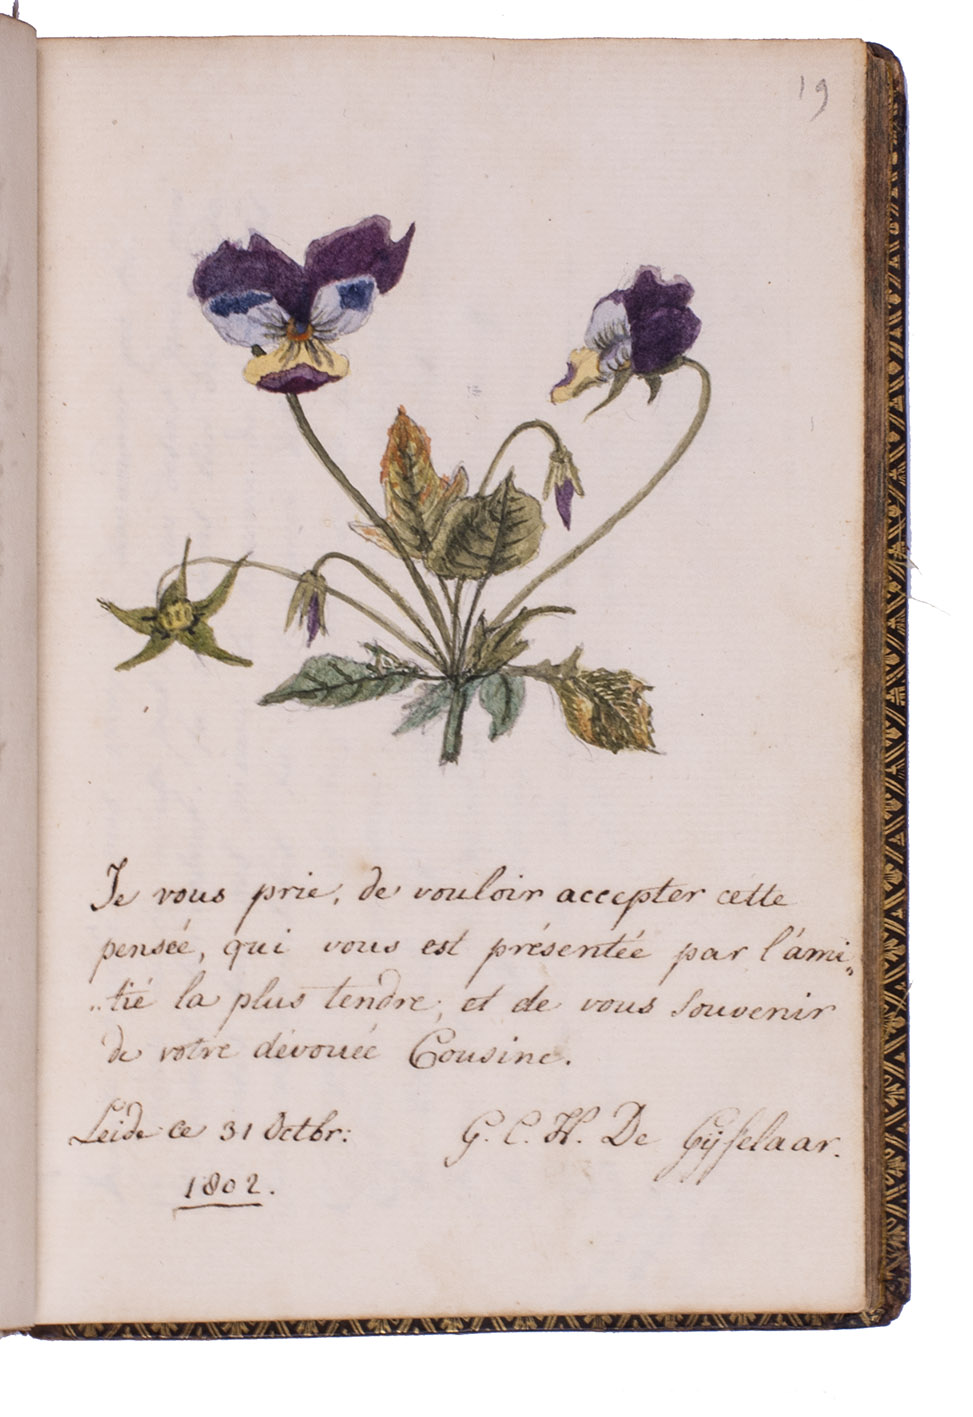 19
Je vous prie, de vouloir accepter cette
penseé, qui vous est présenteé par l'ámi„
„tié la plus tendre, et de vous souvenir
de votre dévoueé Cousine.
Leide ce 31 Octbr: G. C. H. De Gijselaar.
1802.